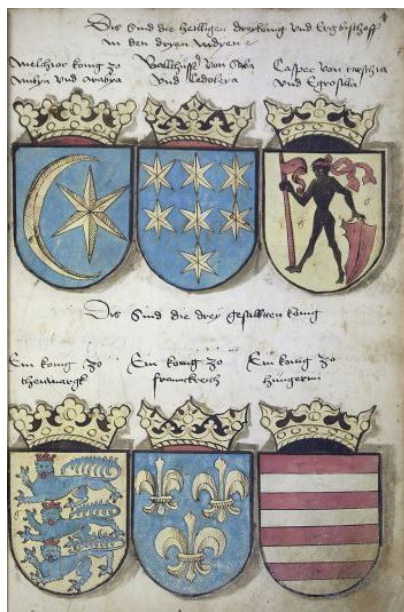 Dis sind die heilligen dreykönig und Ertzbischoff
in den dryen indyen
Melchior konig zo
nubya und arabya
Balthasar von Saba
und
Casper von tarschia
und Egrosilla
Dis sind die drey gesalbten konig
Ein konig zo
thenmargk
Ein konig zo
franckreich
Ein konig zo
hungern